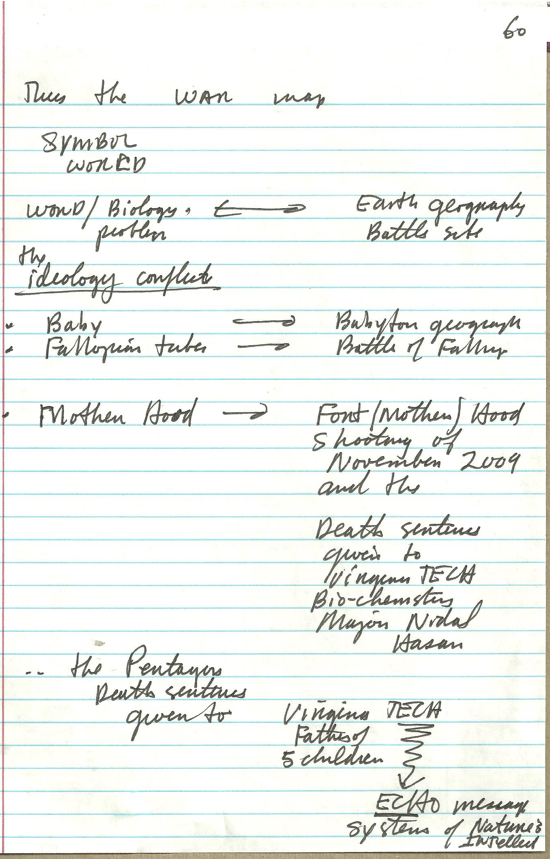 60
Thus the WAR map
SYMBOL
WORLD
WORD/Biology. ⟷ Earth geography
problem Battle site
the
ideology conflict
• Baby → Babylon geograph
• Fallopian tubes → Battle of Falluj
• Mother Hood → Font (Mother) Hood
Shooting of
November 2009
and the
Death sentence
given to
Virginia TECH
Bio-chemistry
Major Nidal
Hasan
.. the Pentagon
Death sentence
given to Virginia TECH
Father of
5 children
ECHO message
system of Nature's
Intellect